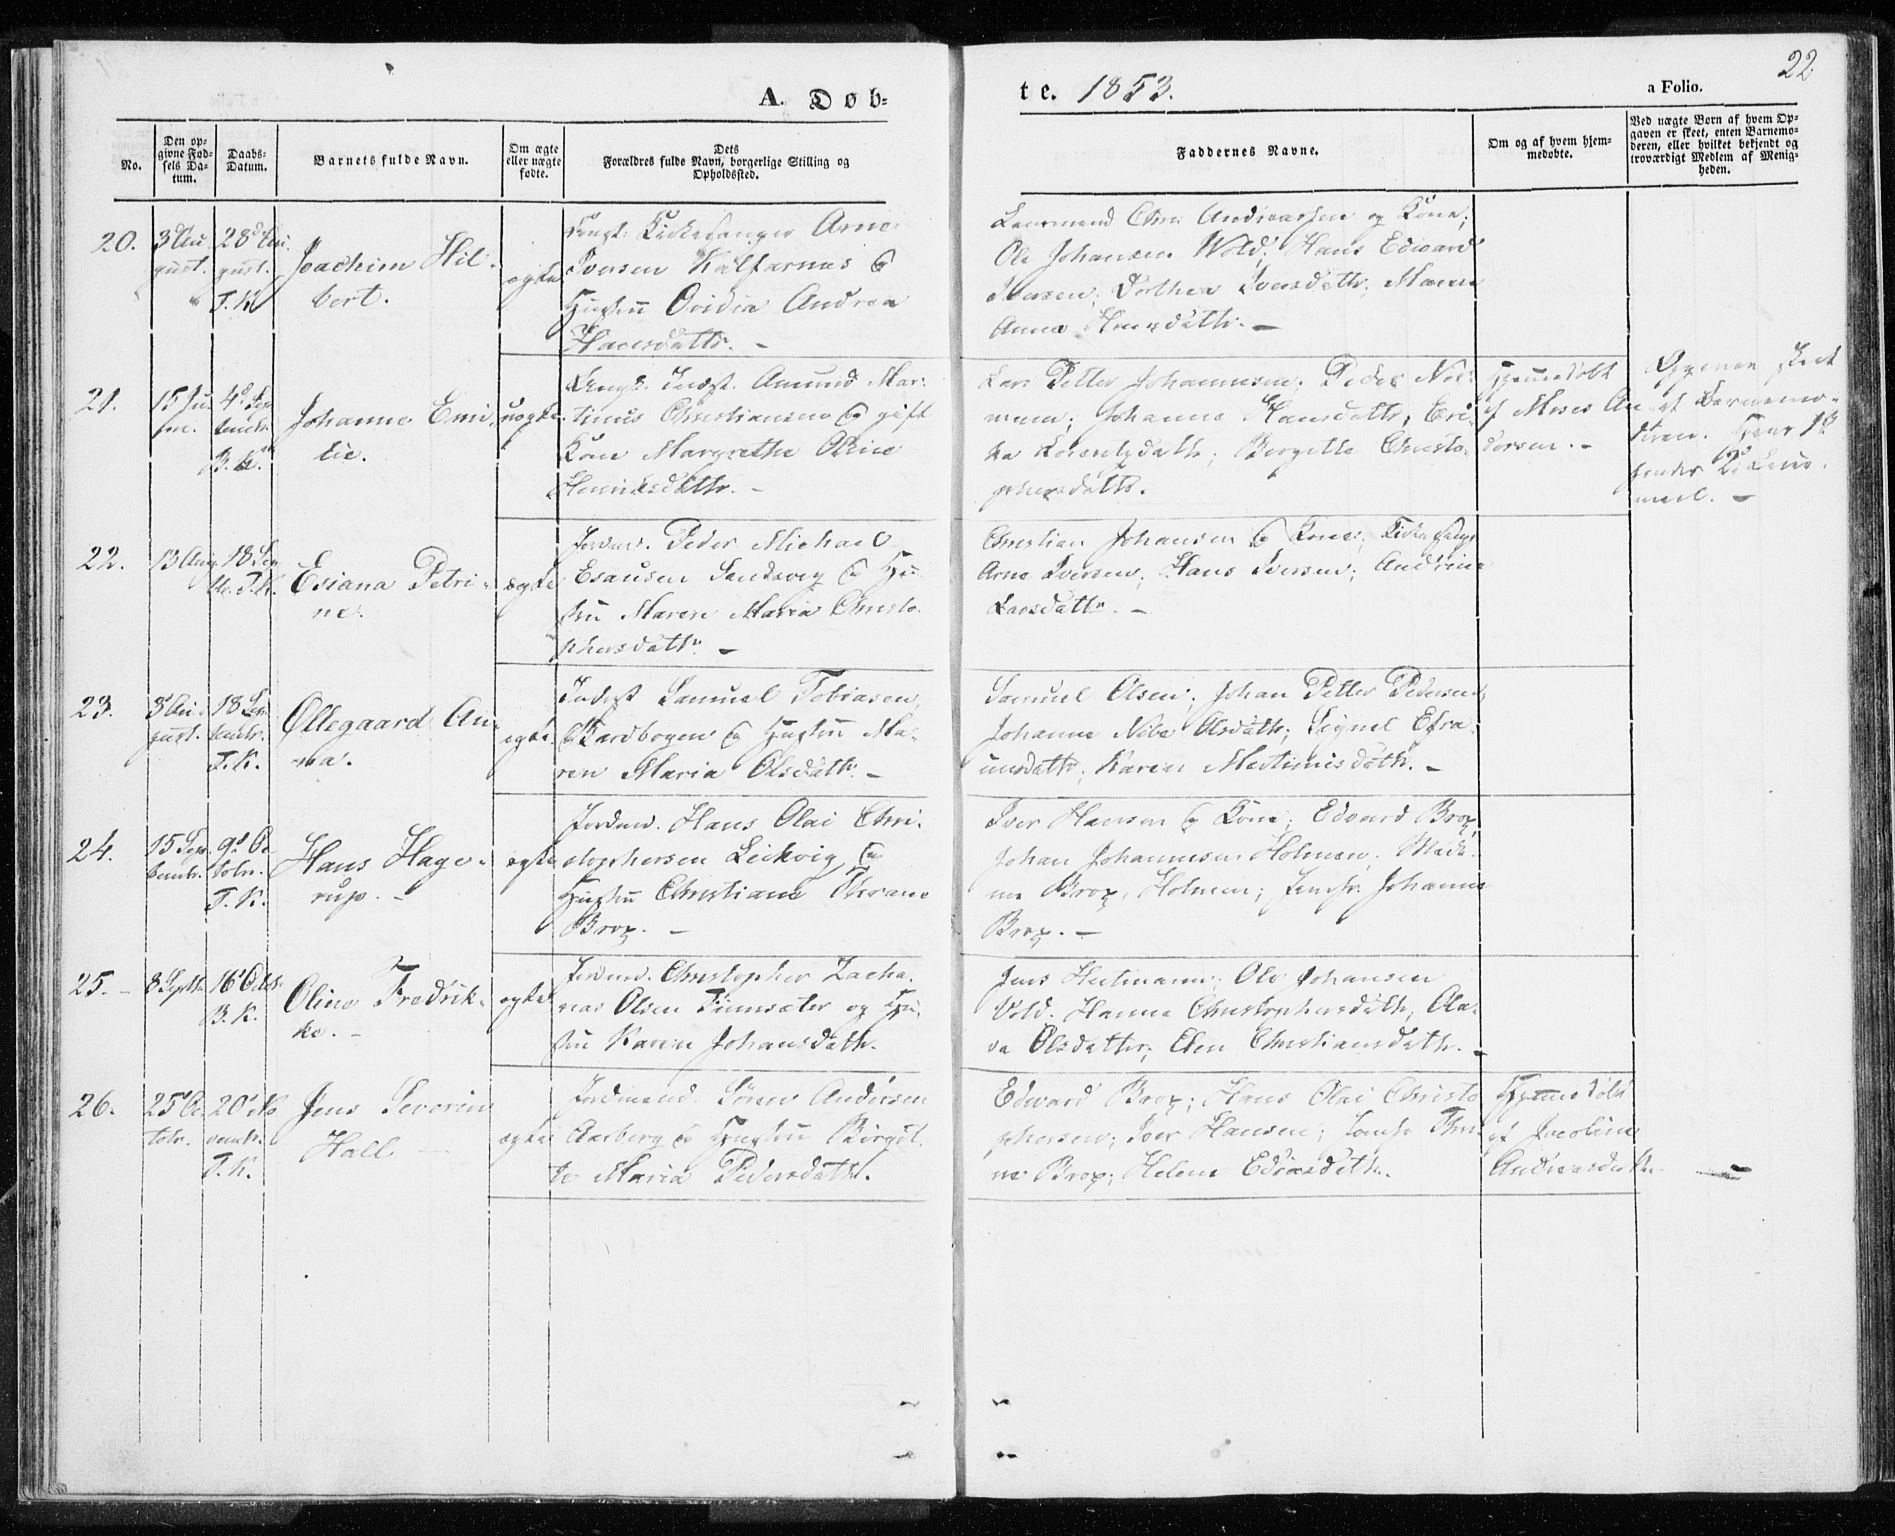 22
A. Døb-
te. 1853.
a Folio.
No.
Den op-
givne Fød-
sels Da-
tum.
Daabs-
Datum.
Barnets fulde Navn.
Om ægte
eller uægte
fødte.
Dets
Forældres fulde Navn, borgerlige Stilling og
Opholdssted.
Faddernes Navne.
Om og af hvem hjem-
medøbte.
Ved uægte Børn af hvem Op-
gaven er skeet, enten Barnemo-
deren, eller hvilket bekjendt og
troværdigt Medlem af Menig-
heden.
20.
3 Au
gust.
28 Au
gust.
T. K.
Joachim Hil-
bert.
ægte
Kirkesanger Arne
Iversen Kalfarnæs &
Hustru Ovidia Andrea
Hansdattr. -
Leensmand Chr. Andreassen og Kone;
Ole Johansen Wold; Hans Edward
Iversen; Dorthea Iversdattr; Maren
Anna Hansdattr. -
21.
15 Ju
4 Sep
tembr.
B. K.
Johanne Emi-
lie.
uægte
Ungk. Inderst. Amund Mar-
tinus Christiansen & gift
Kone Margrethe Oline
Henriksdattr. -
Lars Petter Johannesen; Peder Nor-
mann; Johanna Hansdattr; Eri-
ka Lorentzdattr; Bergitte Christo-
phersdattr.
Hjemmedøbt
af Moses An
dersen. -
Opgaven skeet
af Barnemo-
deren.
22.
13 Aug
18 Sep
tbr. T. K.
Esiana Petri-
ne.
ægte
Jordmd. Peder Michael
Esausen Sandsvog & Hu-
stru Maren Maria Christo-
phersdattr. -
Christian Johansen & Kone; Kirkesanger
Arne Iversen; Hans Iversen; Andrine
Larsdattr. -
23.
3 Au-
gust.
18 Sep
tembr.
T. K.
Øllegaard An-
na.
ægte
Inderst Samuel Tobiasen,
Bardbogen & Hustru Ma-
ren Maria Olsdattr. -
Samuel Olsen; Johan Petter Pedersen;
Johanna Olsdattr; Signel Efra-
imsdattr; Karen Martinusdattr. -
24.
15 Sep-
tembr.
9 Oc
tobr.
T. K.
Hans Hage-
rup. -
ægte
Jordmd. Hans Olai Chri-
stophersen Leikvig &
Hustru Christiane Thrane
Brox. -
Iver Hansen & Kone; Edvard Brox,
Johan Johannesen Holmen; Mada-
me Brox, Holmen; Jomfr. Johanna
Brox. -
25. -
8 Septbr.
16 Octbr.
B. K.
Oline Fredrik-
ke. -
ægte
Jordmd. Christopher Zacha-
rias Olsen Finnsæter og Hu-
stru Karen Johansdattr.
Jens Heitmann; Ole Johansen
Vold. Hanna Christophersdattr; Ola-
va Olsdatter; Elen Christiansdattr. -
26.
25 Oc
tobr.
20 No
vembr.
T. K.
Jens Severin
Hall -
ægte
Jordmand. Sören Andersen
Aarberg & Hustru Birgit-
te Maria Pedersdattr.
Edward Brox; Hans Olai Christo
phersen; Iver Hansen; Jomfr Thri-
ne Brox; Helena Edisdattr.
Hjemmedøbt
af Jacobine
Andreasdattr. -